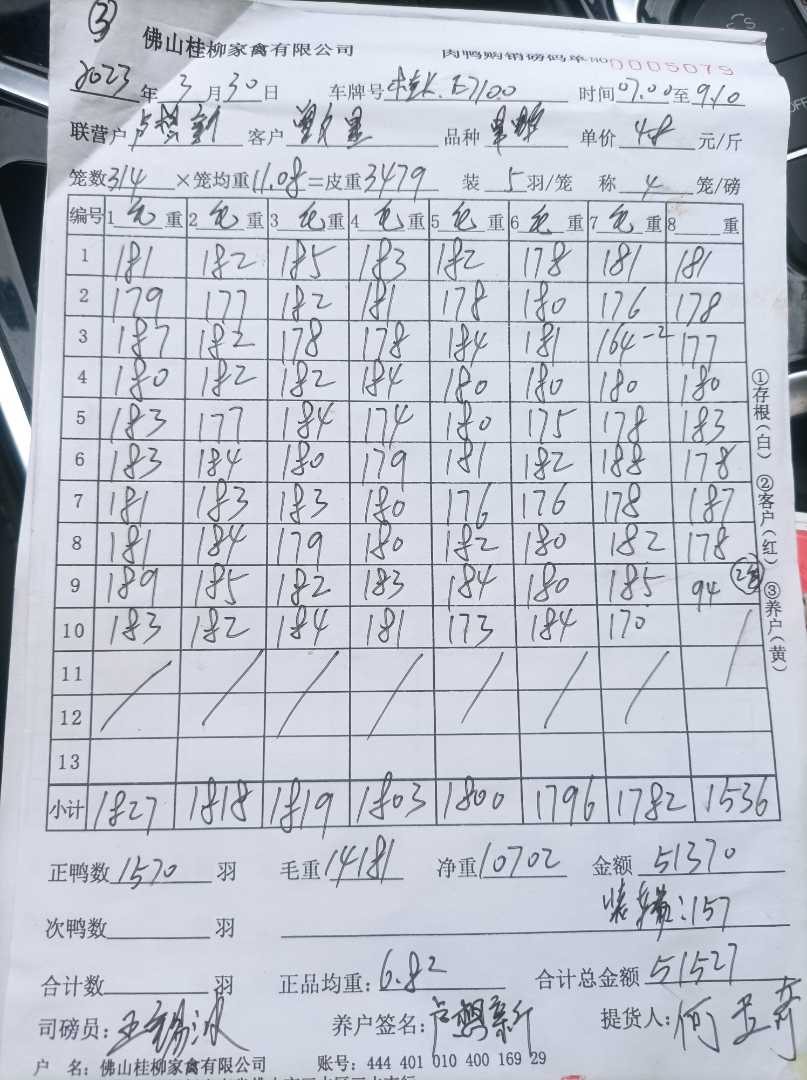 ③
佛山桂柳家禽有限公司 肉鸭购销磅码单 NO 0005079
2023年3月30日 车牌号 E7100 时间07.00至9.10
联营户 客户 品种 单价4.8元/斤
笼数314×笼均重11.08=皮重3479 装5羽/笼 称4笼/磅
编号 1毛重 2毛重 3毛重 4毛重 5毛重 6毛重 7毛重 8重
1 181 182 185 183 182 178 181 181
2 179 177 182 181 178 180 176 178
3 187 182 178 178 184 181 164-2 177
4 180 182 182 184 180 180 180 180
5 183 177 184 174 180 175 178 183
6 183 184 180 179 181 182 188 178
7 181 183 183 180 176 176 178 187
8 181 184 179 180 182 180 182 178
9 189 185 182 183 184 180 185 94
10 183 182 184 181 173 184 170
11
12
13
小计 1827 1818 1819 1803 1800 1796 1782 1536
①存根(白) ②客户(红) ③养户(黄)
正鸭数1570羽 毛重14181 净重10702 金额51370
次鸭数羽 :157
合计数羽 正品均重:6.82 合计总金额51527
司磅员: 养户签名: 提货人:
户 名:佛山桂柳家禽有限公司 账号:444 401 010 400 169 29